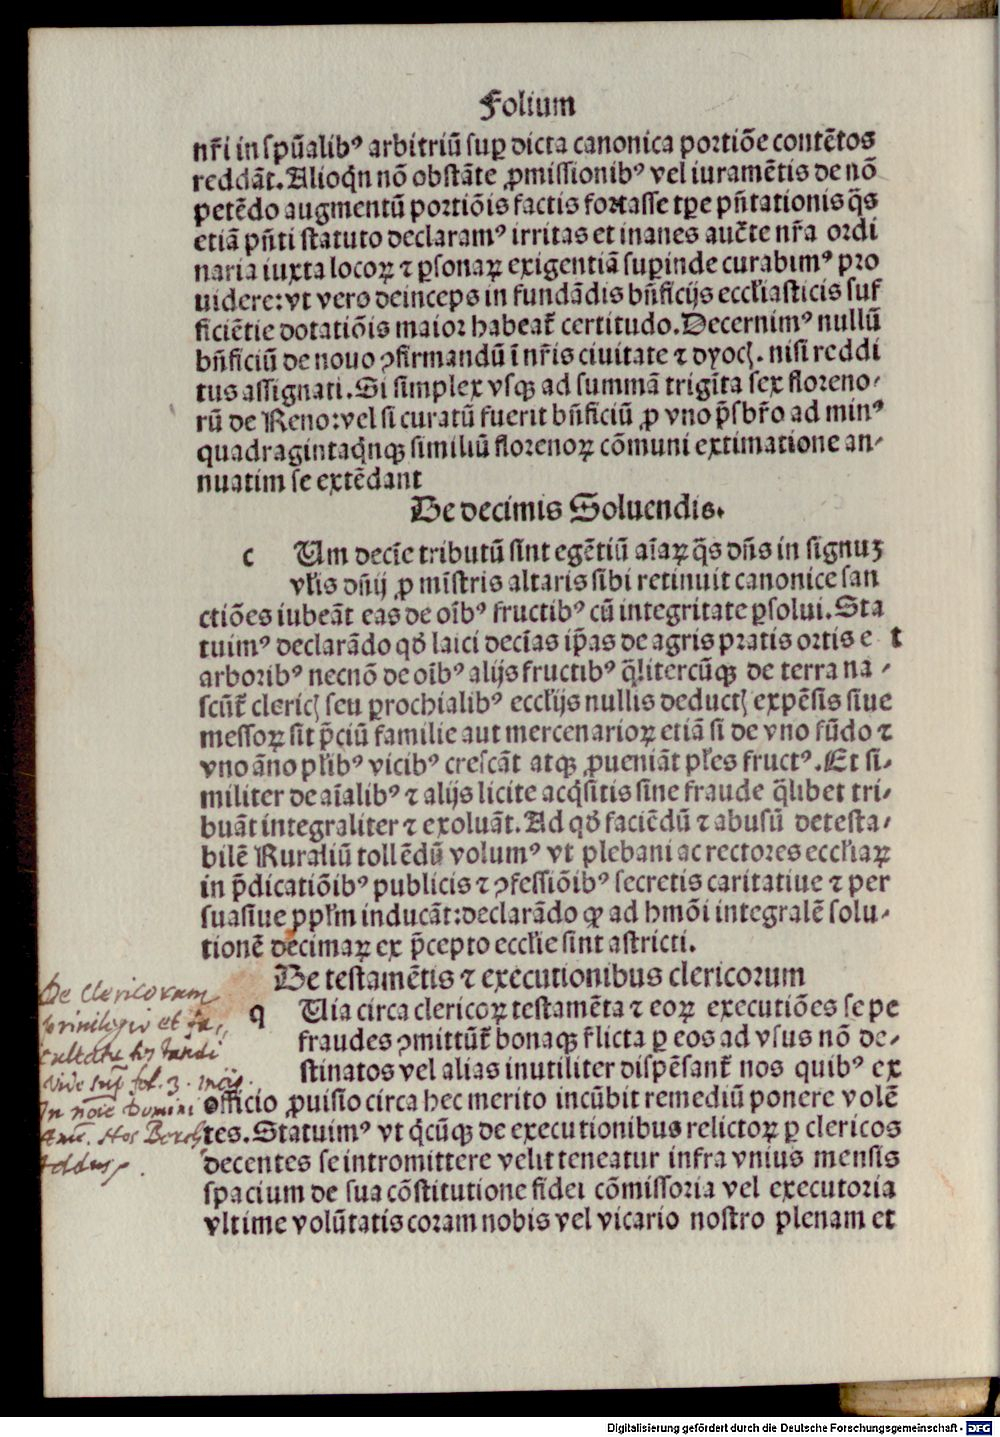 Folium
nr̄i in spūalibꝰ arbitriū suꝑ dicta canonica portiōe contētos
reddāt. Alioqͥn nō obstāte ꝓmissionibꝰ vel iuramētis de nō
petēdo augmentū portiōis factis fortasse tꝑe pn̄tationis q̄s
etiā pn̄ti statuto declaramꝰ irritas et inanes auct̄e nr̄a ordi
naria iuxta locoꝝ ⁊ ꝑsonaꝝ exigentiā suꝑinde curabimꝰ pro
uidere: vt vero deinceps in fundādis bn̄ficijs eccl̄iasticis suf
ficiētie dotatiōis maior habeat̄ certitudo. Decernimꝰ nullū
bn̄ficiū de nouo ꝯfirmandū ī nr̄is ciuitate ⁊ dyoc̄. nisi reddi
tus assignati. Si simplex vsqꝫ ad summā trigīta sex floreno⸗
rū de Reno: vel si curatū fuerit bn̄ficiū ꝓ vno p̄sbr̄o ad minꝰ
quadragintaqͥnqꝫ similiū florenoꝝ cōmuni extimatione an⸗
nuatim se extēdant
De decimis Soluendis.
c Um decīe tributū sint egētiū aīaꝝ q̄s dn̄s in signuꝫ
vl̄is dn̄ij ꝓ mīstris altaris sibi retinuit canonice san
ctiōes iubeāt eas de oībꝰ fructibꝰ cū integritate ꝑsolui. Sta
tuimꝰ declarādo qđ laici decīas ip̄as de agris pratis ortis e t
arboribꝰ necnō de oībꝰ alijs fructibꝰ q̄litercūqꝫ de terra na⸗
scūt̄ cleric̄ seu ꝑrochialibꝰ eccl̄ijs nullis deduct̄ expēsis siue
messoꝝ sit p̄ciū familie aut mercenarioꝝ etiā si de vno fūdo ⁊
vno āno pl̄ibꝰ vicibꝰ crescāt atqꝫ ꝓueniāt pl̄es fructꝰ. Et si⸗
militer de aīalibꝰ ⁊ alijs licite acqͥsitis sine fraude q̄libet tri⸗
buāt integraliter ⁊ exoluāt. Ad qđ faciēdū ⁊ abusū detesta⸗
bilē Ruraliū tollēdū volumꝰ vt plebani ac rectores eccl̄iaꝝ
in p̄dicatiōibꝰ publicis ⁊ ꝯfessiōibꝰ secretis caritatiue ⁊ per
suasiue ꝑ ppl̄m inducāt: declarādo ꝙ ad hmōi integralē solu⸗
tionē decimaꝝ ex p̄cepto eccl̄ie sint astricti.
De testamētis ⁊ executionibus clericorum
q Uia circa clericoꝝ testamēta ⁊ eoꝝ executiōes sepe
fraudes ꝯmittūt̄ bonaqꝫ r̄licta ꝑ eos ad vsus nō de⸗
stinatos vel alias inutiliter dispēsant̄ nos quibꝰ ex
officio ꝓuisio circa hec merito incūbit remediū ponere volē
tes. Statuimꝰ vt qͥcūqꝫ de executionibus relictoꝝ ꝑ clericos
decentes se intromittere velit teneatur infra vnius mensis
spacium de sua cōstitutione fidei cōmissoria vel executoria
vltime volūtatis coram nobis vel vicario nostro plenam et
De clericorum
priuilegio et fa⸗
cultate
vide sup̄ fol. 3.
In noīe Domini
Ame.
Digitalisierung gefördert durch die Deutsche Forschungsgemeinschaft - DFG